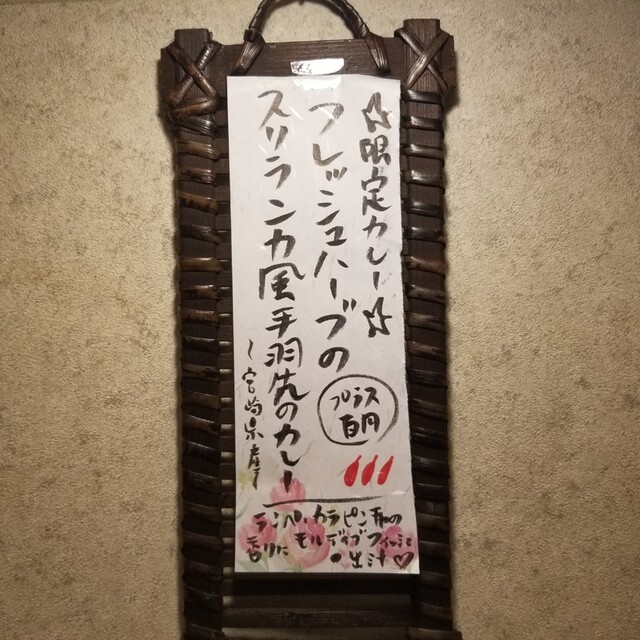 ☆限定カレー☆
フレッシュハーブの
スリランカ風手羽先のカレー
~宮崎県産~
プラス
百円
ランペ、カラピンチャの
香りに モルディブフィッシュ
出汁♡